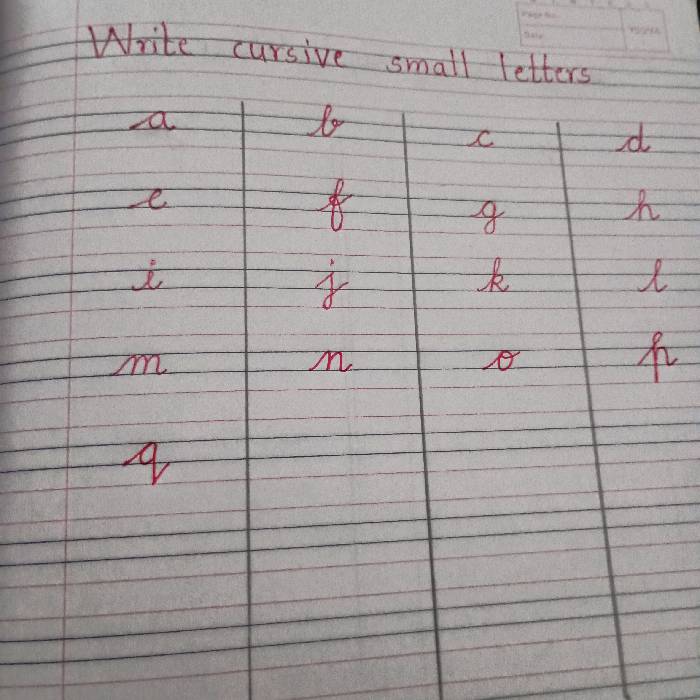 Write cursive small letters
a b c d
e f g h
i j k l
m n o p
q